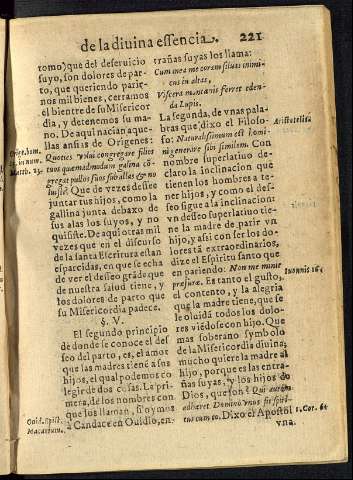 de la diuina essencia. 221
tomo) que del deseruicio
suyo, son dolores de par-
to, que queriendo parir-
nos mil bienes, cerramos
el bientre de su Misericor
dia, y detenemos su ma-
no. De aqui nacian aque-
llas ansias de Origenes:
Quoties volui congregare filios
tuos quemadmodum galina cō-
gregat pullos suos sub alas & no
luisti. Que de vezes dessee
juntar tus hijos, como la
gallina junta debaxo de
sus alas los suyos, y no
quisiste. De aqui otras mil
vezes que en el discurso
de la santa Escritura estan
esparcidas, en que se echa
de ver el desseo grāde que
de nuestra salud tiene, y
los dolores de parto que
su Misericordia padece.
§. V.
El segundo principio
de donde se conoce el des
seo del parto, es, el amor
que las madres tienē a sus
hijos, el qual podemos co
legir de dos cosas. La pri-
mera, de los nombres con
que los llaman, si oymos
à Candace en Ouidio, en-
Orige. hom.
in num.
Matth. 23.
Ouid. Epist.
Macarium.
trañas suyas los llama:
Cum mea me coram siluas inimi
cus in altas,
Viscera montanis ferret eden-
da Lupis.
La segunda, de vnas pala-
bras que dixo el Filoso-
fo: Naturalissimum est homi
ni generare sibi similem. Con
nombre superlatiuo de-
claro la inclinacion que
tienen los hombres a te-
ner hijos, y como el des-
seo sigue a la inclinacion:
vn desseo superlatiuo tie-
ne la madre de parir vn
hijo, y assi con ser los do-
lores tā extraordinarios,
dize el Espiritu santo que
en pariendo: Non me minit
pressuræ. Es tanto el gusto,
el contento, y la alegria
que la madre tiene, que se
le oluidā todos los dolo-
res viédose con hijo. Que
mas soberano symbolo
de la Misericordia diuina;
mucho quiere la madre al
hijo, porque es las entra-
ñas suyas, y los hijos de
Dios, que son? Qui autem
adhæret Domino vnus fit spiri-
tus cum eo. Dixo el Apostol
vna.
Aristotelis
Ioannis 16.
1. Cor. 6.